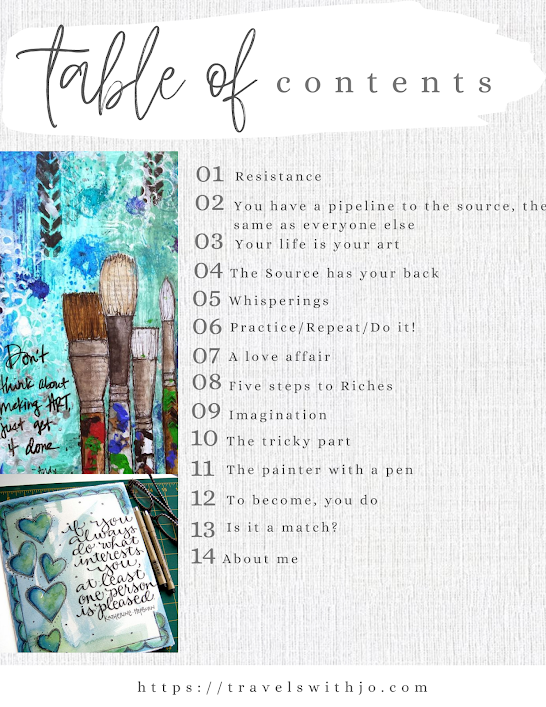 table of contents
01 Resistance
02 You have a pipeline to the source, the
same as everyone else
03 Your life is your art
04 The Source has your back
05 Whisperings
06 Practice/Repeat/Do it!
07 A love affair
08 Five steps to Riches
09 Imagination
10 The tricky part
11 The painter with a pen
12 To become, you do
13 Is it a match?
14 About me
Don't
think about
making ART,
just get
it done
if you
always
do what
interests
you,
at least
one person
is pleased
KATHERINE HEPBURN
https://travelswithjo.com